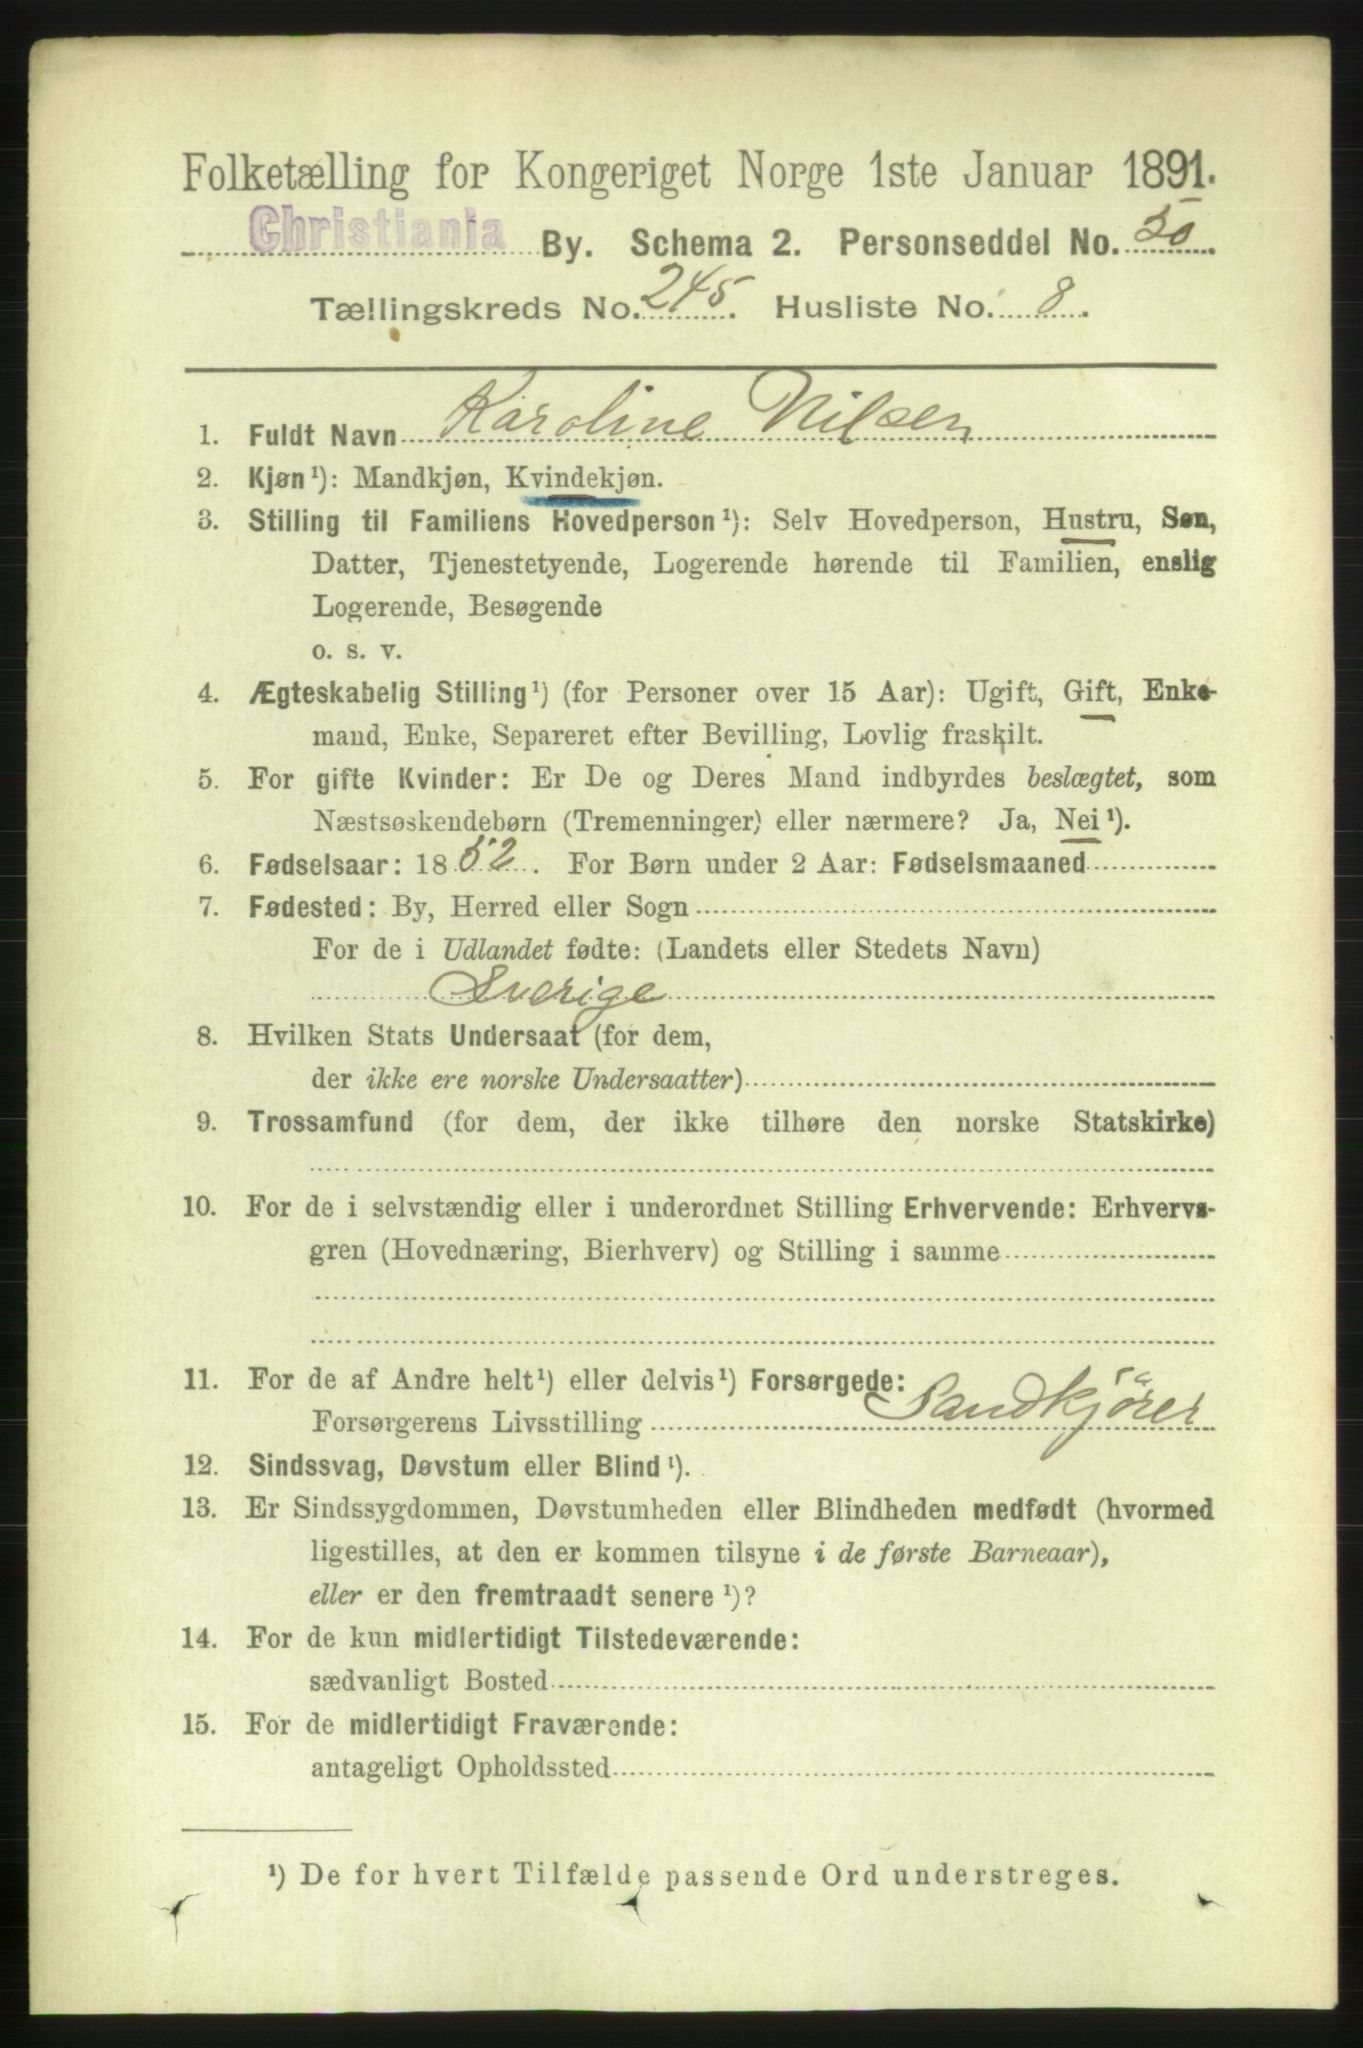 Folketælling for Kongeriget Norge 1ste Januar 1891.
Christiania By. Schema 2. Personseddel No. 50.
Tællingskreds No. 245. Husliste No. 8.
1. Fuldt Navn Karoline Nilsen
2. Kjøn¹): Mandkjøn, Kvindekjøn.
3. Stilling til Familiens Hovedperson¹): Selv Hovedperson, Hustru, Søn,
Datter, Tjenestetyende, Logerende hørende til Familien, enslig
Logerende, Besøgende
o. s. v.
4. Ægteskabelig Stilling¹) (for Personer over 15 Aar): Ugift, Gift, Enke-
mand, Enke, Separeret efter Bevilling, Lovlig fraskilt.
5. For gifte Kvinder: Er De og Deres Mand indbyrdes beslægtet, som
Næstsøskendebørn (Tremenninger) eller nærmere? Ja, Nei¹).
6. Fødselsaar: 1852. For Børn under 2 Aar: Fødselsmaaned
7. Fødested: By, Herred eller Sogn
For de i Udlandet fødte: (Landets eller Stedets Navn)
Sverige
8. Hvilken Stats Undersaat (for dem,
der ikke ere norske Undersaatter)
9. Trossamfund (for dem, der ikke tilhøre den norske Statskirke)
10. For de i selvstændig eller i underordnet Stilling Erhvervende: Erhvervs-
gren (Hovednæring, Bierhverv) og Stilling i samme
11. For de af Andre helt¹) eller delvis¹) Forsørgede:
Forsørgerens Livsstilling Sandkjörer
12. Sindssvag, Døvstum eller Blind¹).
13. Er Sindssygdommen, Døvstumheden eller Blindheden medfødt (hvormed
ligestilles, at den er kommen tilsyne i de første Barneaar),
eller er den fremtraadt senere¹)?
14. For de kun midlertidigt Tilstedeværende:
sædvanligt Bosted
15. For de midlertidigt Fraværende:
antageligt Opholdssted
¹) De for hvert Tilfælde passende Ord understreges.